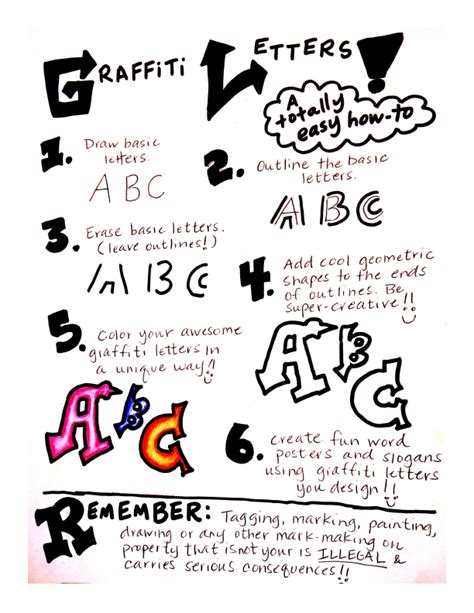 GRAFFiTi LETTERS!
A
totally
easy how-to
1. Draw basic
letters.
ABC
2. Outline the basic
letters.
ABC
3. Erase basic letters.
(leave outlines!)
ABC
4. Add cool geometric
shapes to the ends
of outlines. Be
super-creative!!
ABC
5. Color your awesome
graffiti letters in
a unique way!!
ABC
6. create fun word
posters and slogans
using graffiti letters
you design!!
REMEMBER: Tagging, marking, painting,
drawing or any other mark-making on
property that isnot your is ILLEGAL &
carries serious consequences!!